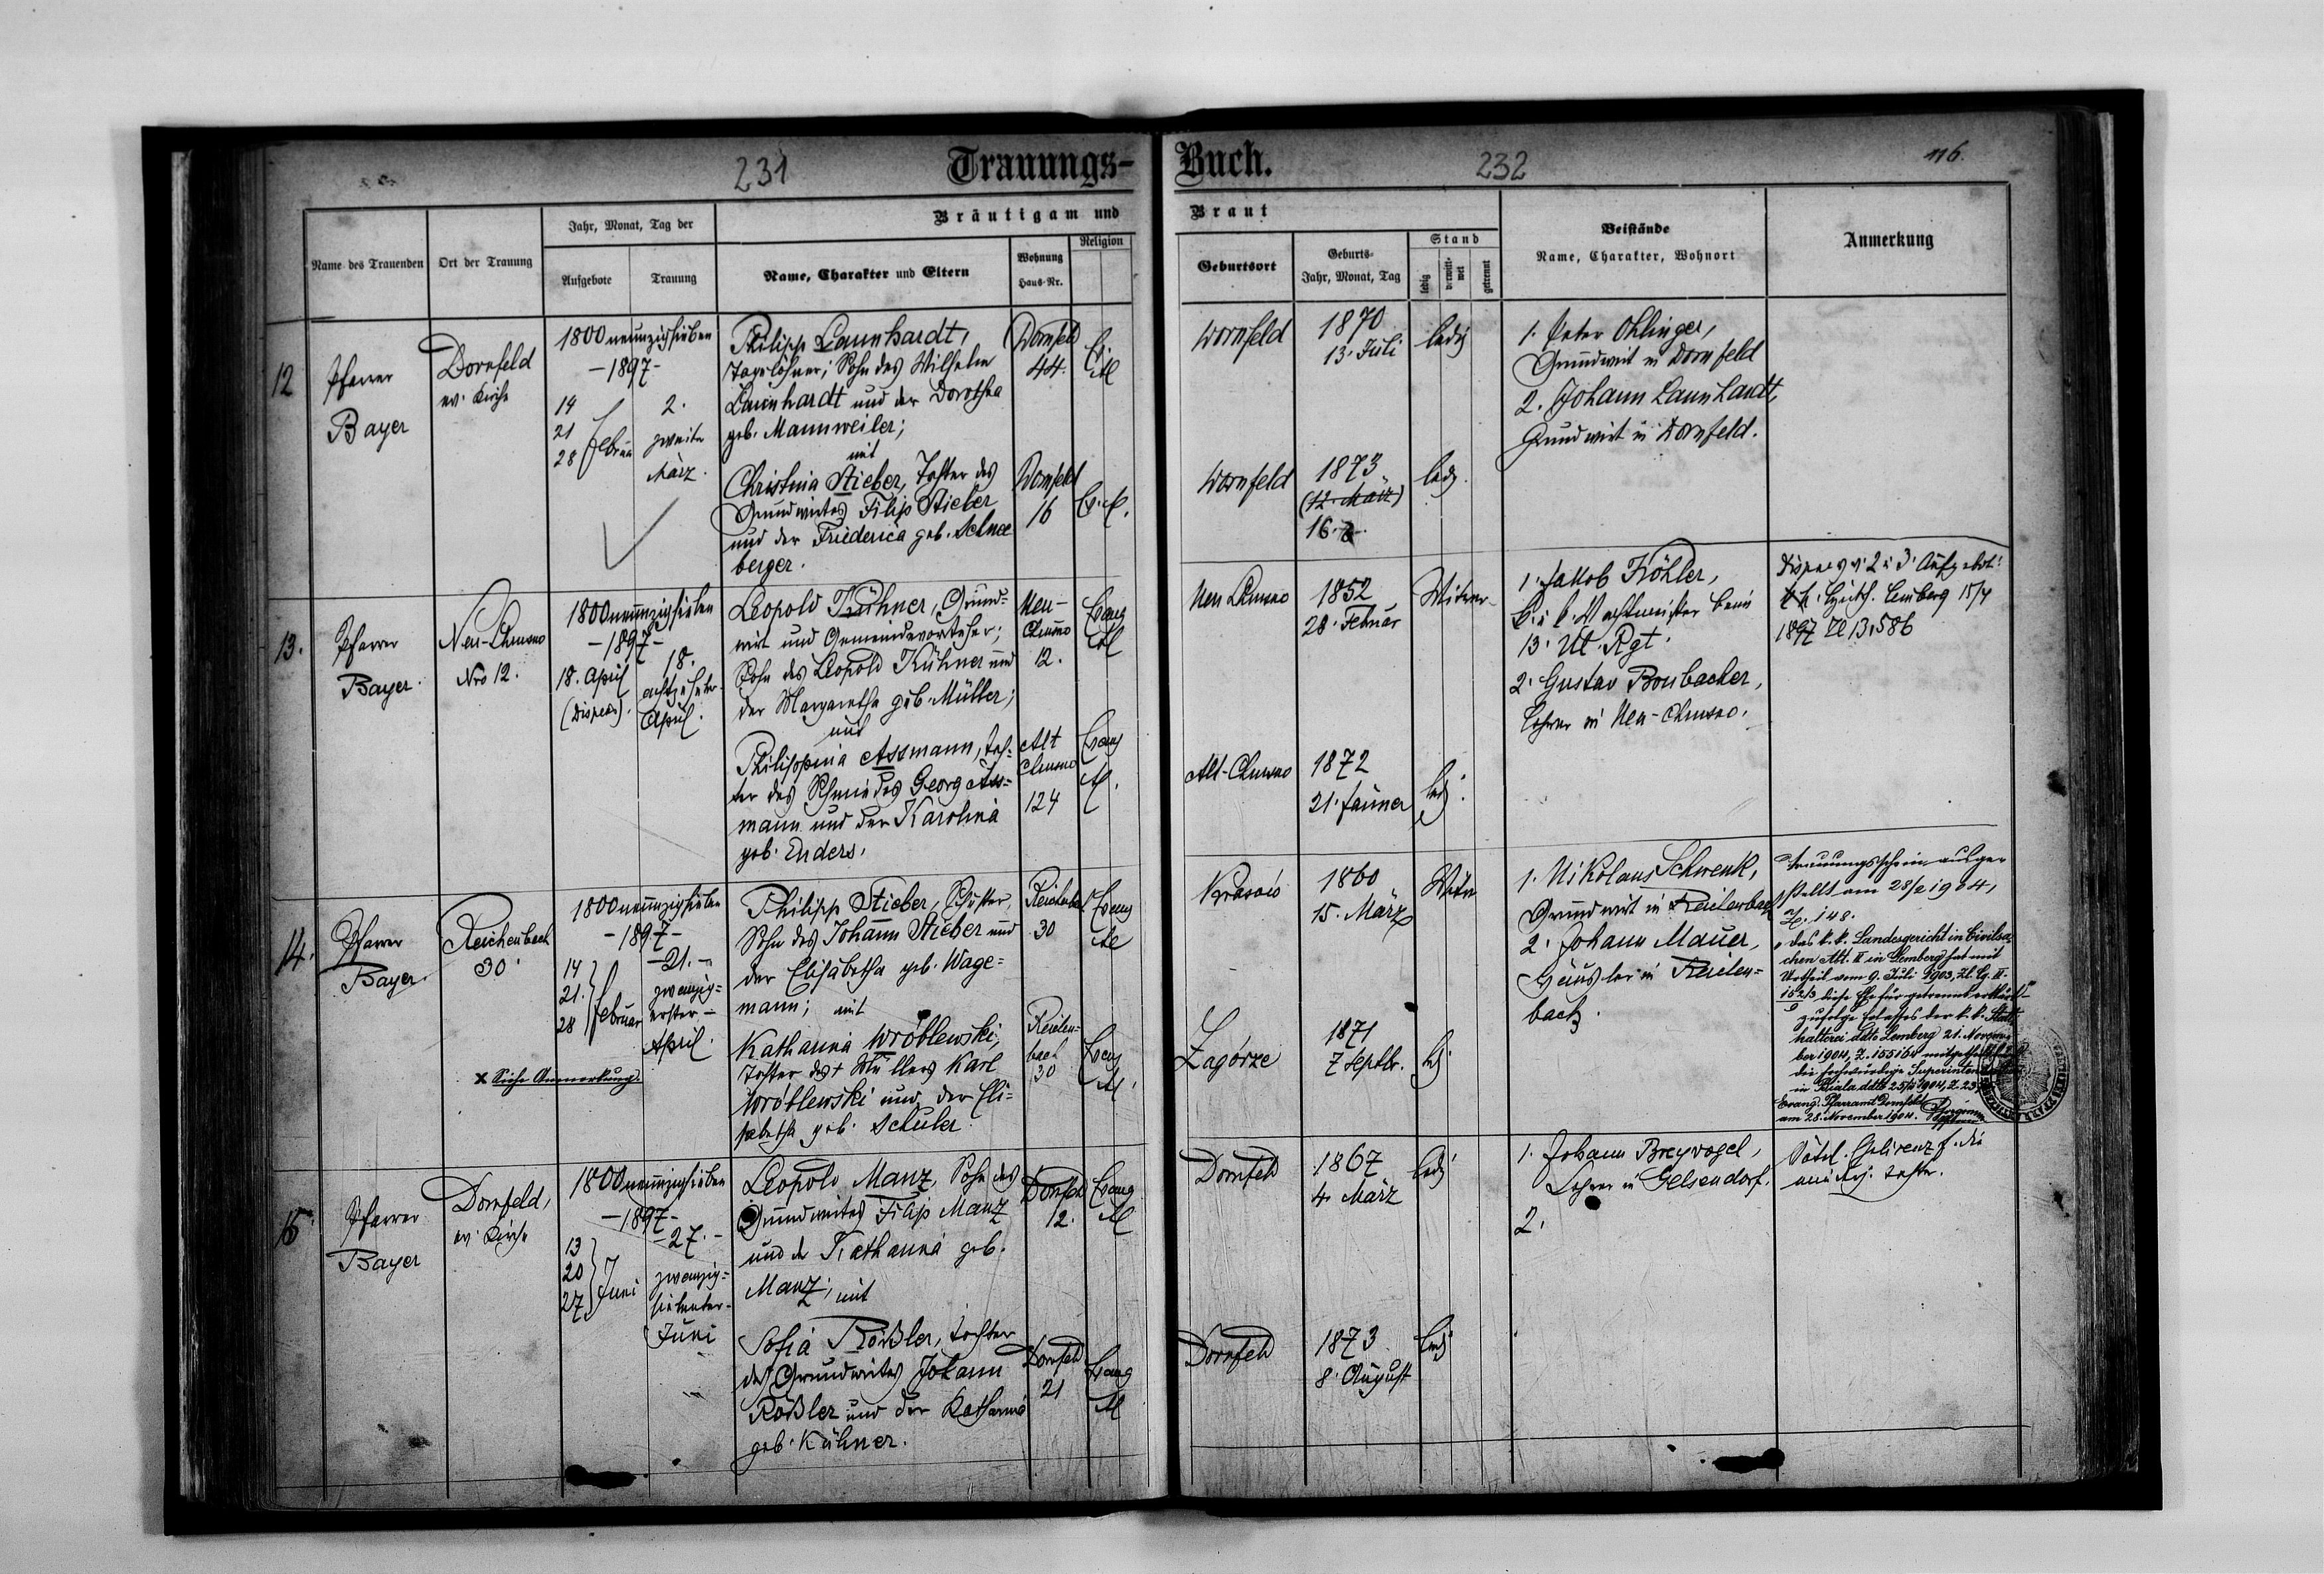 231
Trauungs-
Buch.
232
116.
Bräutigam und
Braut
Name des Trauenden
Ort der Trauung
Jahr, Monat, Tag der
Aufgebote
Trauung
Name, Charakter und Eltern
Wohnung
Haus-Nr.
Religion
Geburtsort
Geburts-
Jahr, Monat, Tag
Stand
ledig
verwitt-
wet
getrennt
Beistände
Name, Charakter, Wohnort
Anmerkung
12
Pfarrer
Bayer
Dornfeld
ev. Kirche
1800 neunzigsieben
-1897-
14
21
28
Februar
2.
zweiter
März.
Philipp Launhardt,
Tagelöhner; Sohn des Wilhelm
Launhardt und der Dorothea
geb. Mannweiler;
mit
Christina Stieber, Tochter des
Grundwirtes Filip Stieber
und der Friederica geb. Schnee
berger.
Dornfeld
44.
Dornfeld
16
Dornfeld
1870
13. Juli
ledig
Dornfeld
1873
(12. März)
16.
ledig.
1. Peter Ohlinger,
Grundwirt in Dornfeld
2. Johann Launhardt,
Grundwirt in Dornfeld.
13.
Pfarrer
Bayer.
Neu-Chrusno
Nro 12.
1800 neunzigsieben
-1897-
18. April
(Dispens).
18.
achtzehnter
April.
Leopold Kühner, Grund-
wirt und Gemeindevorsteher;
Sohn des Leopold Kühner und
der Margaretha geb. Müller;
und
Philippina Assmann, Toch-
ter des Schmiedes Georg Ass-
mann und der Karolina
geb. Enders.
Neu-
Chrusno
12.
Evang
Alt
Chrusno
124
Evang
Neu Chrusno
1852
28. Februar
Witwer
Alt-Chrusno
1872
21. Jänner
led.
1. Jakob Köhler,
k. u. k. Wachtmeister beim
13. Ul. Rgt.
2. Gustav Bonbacher,
Lehrer in Neu-Chrusno.
Dispens v. 2 u 3. Aufgebot:
Lemberg 15/4
1897 Zl 13,586
14.
Pfarrer
Bayer.
Reichenbach
30.
1800 neunzigsieben
-1897-
14
21.
28
Februar
-21.-
zwanzig-
erster-
April.
x Siehe Anmerkung.
Philipp Stieber, Schuster,
Sohn des Johann Stieber und
der Elisabetha geb. Wage-
mann; mit
Kathanna Wróblewski,
Tochter des + Müllers Karl
Wróblewski und der Eli-
sabetha geb. Schuler.
30
Evang
Reichen-
bach
30
Evang
1860
15. März
Zagórze
1871
7 Septbr.
led.
1. Nikolaus Schwenk,
Grundwirt in Reichenbach
2. Johann Mauer,
Häusler in Reichen-
bach.
Trauungsschein ausge-
stellt am 28/2 1904,
Z. 148.
"Das k. k. Landesgericht in Civilsa-
chen Abt. II in Lemberg hat mit
Urtheil vom 9. Juli 1903, Zl. Cg. II.
152/3 diese Ehe für getrennt erklärt"-
zufolge Erlasses der k. k. Statt-
halterei ddto Lemberg 21. Novem-
ber 1904, Z. 155161 mitgetheilt durch
die hochwürdige Superintendentur
in Biala ddto 25/11 1904, Z. 23
Evang. Pfarramt Dornfeld
am 28. November 1904.
15.
Pfarrer
Bayer
Dornfeld,
ev. Kirche
1800 neunzigsieben
-1897-
13
20
27
Juni
-27.-
zwanzig-
siebenter-
Juni
Leopold Manz, Sohn des
Grundwirtes Filip Manz
und der Kathanna geb.
Manz; mit
Sofia Rößler, Tochter
des Grundwirtes Johann
Rößler und der Katharina
geb. Kühner.
Dornfeld
12.
Evang
Dornfeld
21
Evang
Dornfeld
1867
4 März
ledig
Dornfeld
1873
8. August
led.
1. Johann Breyvogel,
Lehrer in Gelsendorf.
2.